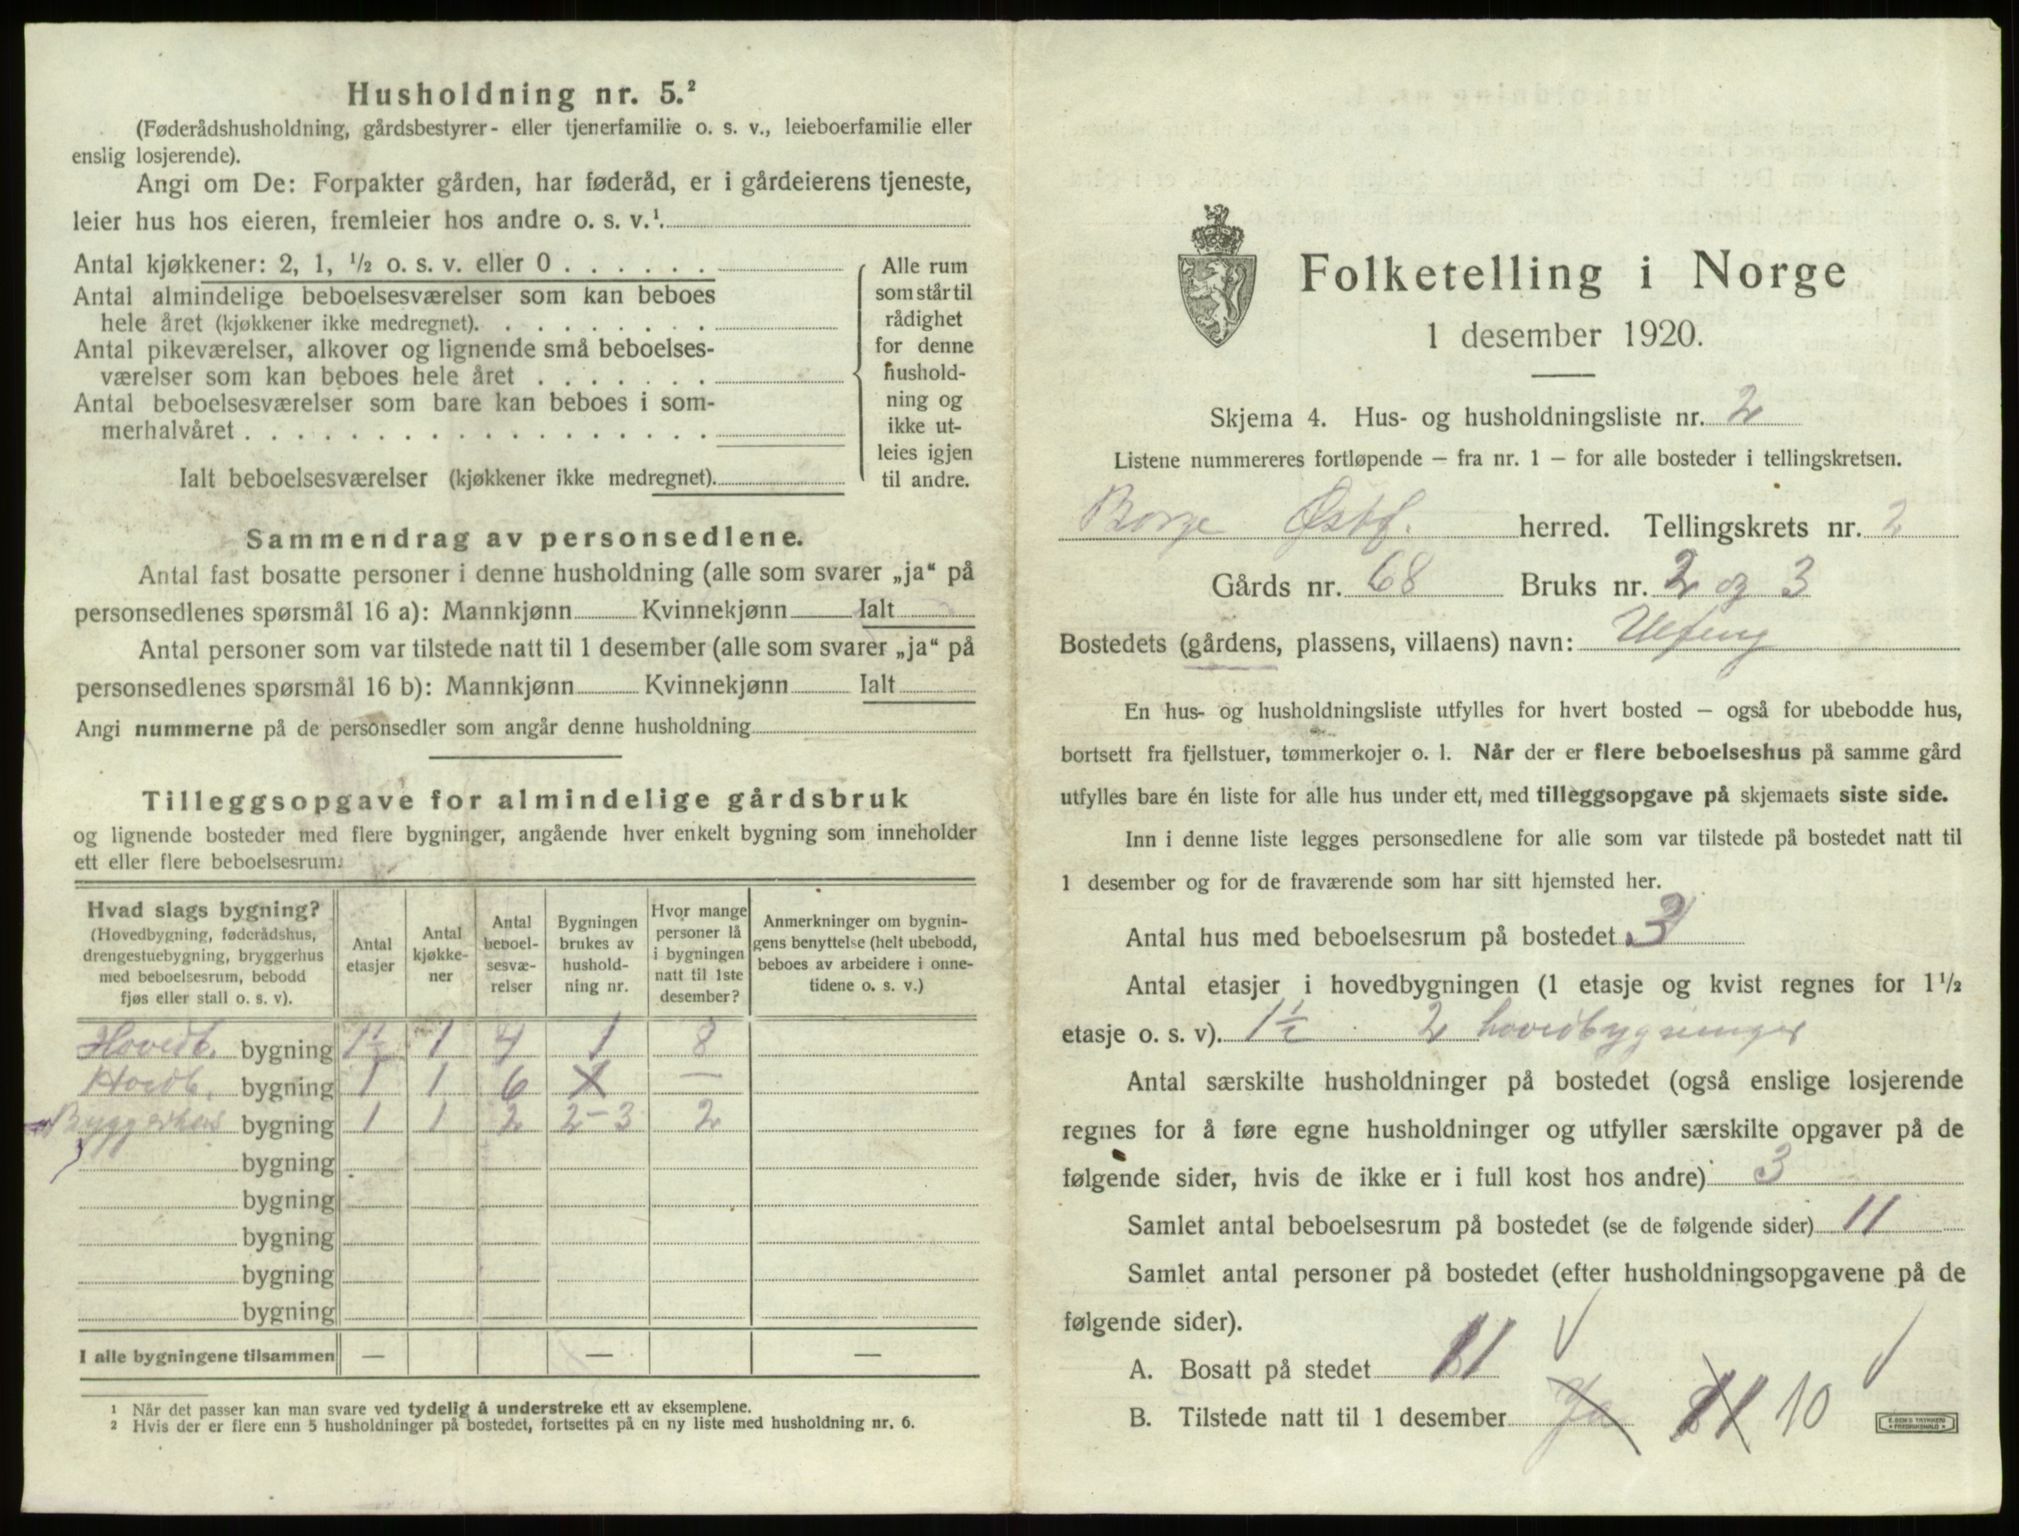 Husholdning nr. 5.²
(Føderådshusholdning, gårdsbestyrer- eller tjenerfamilie o. s. v., leieboerfamilie eller
enslig losjerende).
Angi om De: Forpakter gården, har føderåd, er i gårdeierens tjeneste,
leier hus hos eieren, fremleier hos andre o. s. v.¹.
Antal kjøkkener: 2, 1, ½ o. s. v. eller 0 . . . . . .
Antal almindelige beboelsesværelser som kan beboes
hele året (kjøkkener ikke medregnet). . . . . . . . .
Antal pikeværelser, alkover og lignende små beboelses-
værelser som kan beboes hele året . . . . . . .
Antal beboelsesværelser som bare kan beboes i som-
merhalvåret . . . . . . . . . . . . . . . . . .
Ialt beboelsesværelser (kjøkkener ikke medregnet).
Alle rum
som står til
rådighet
for denne
hushold-
ning og
ikke ut-
leies igjen
til andre.
Sammendrag av personsedlene.
Antal fast bosatte personer i denne husholdning (alle som svarer „ja“ på
personsedlenes spørsmål 16 a): Mannkjønn Kvinnekjønn Ialt
Antal personer som var tilstede natt til 1 desember (alle som svarer „ja“ på
personsedlenes spørsmål 16 b): Mannkjønn Kvinnekjønn Ialt
Angi nummerne på de personsedler som angår denne husholdning
Tilleggsopgave for almindelige gårdsbruk
og lignende bosteder med flere bygninger, angående hver enkelt bygning som inneholder
ett eller flere beboelsesrum.
Hvad slags bygning?
(Hovedbygning, føderådshus,
drengestuebygning, bryggerhus
med beboelsesrum, bebodd
fjøs eller stall o. s. v).
Antal
etasjer
Antal
kjøkke-
ner
Antal
beboel-
sesvæ-
relser
Bygningen
brukes av
hushold-
ning nr.
Hvor mange
personer lå
i bygningen
natt til 1ste
desember?
Anmerkninger om bygnin-
gens benyttelse (helt ubebodd,
beboes av arbeidere i onne-
tidene o. s. v.)
Hovedb. bygning 1½ 1 4 1 8
Hovdb. bygning 1 1 6 1 —
Byggerhus bygning 1 1 2 2-3 2
bygning
bygning
bygning
bygning
bygning
I alle bygningene tilsammen — — —
¹ Når det passer kan man svare ved tydelig å understreke ett av eksemplene.
² Hvis der er flere enn 5 husholdninger på bostedet, fortsettes på en ny liste med husholdning nr. 6.
Folketelling i Norge
1 desember 1920.
Skjema 4. Hus- og husholdningsliste nr. 2
Listene nummereres fortløpende – fra nr. 1 – for alle bosteder i tellingskretsen.
Borge Østf. herred. Tellingskrets nr. 2
Gårds nr. 68 Bruks nr. 2 og 3
Bostedets (gårdens, plassens, villaens) navn:
En hus- og husholdningsliste utfylles for hvert bosted – også for ubebodde hus,
bortsett fra fjellstuer, tømmerkojer o. l. Når der er flere beboelseshus på samme gård
utfylles bare én liste for alle hus under ett, med tilleggsopgave på skjemaets siste side.
Inn i denne liste legges personsedlene for alle som var tilstede på bostedet natt til
1 desember og for de fraværende som har sitt hjemsted her.
Antal hus med beboelsesrum på bostedet 3
Antal etasjer i hovedbygningen (1 etasje og kvist regnes for 1½
etasje o. s. v). 1½ 2 hovedbygninger
Antal særskilte husholdninger på bostedet (også enslige losjerende
regnes for å føre egne husholdninger og utfyller særskilte opgaver på de
følgende sider, hvis de ikke er i full kost hos andre) 3
Samlet antal beboelsesrum på bostedet (se de følgende sider) 11
Samlet antal personer på bostedet (efter husholdningsopgavene på de
følgende sider).
A. Bosatt på stedet 11
B. Tilstede natt til 1 desember Ja 11 10